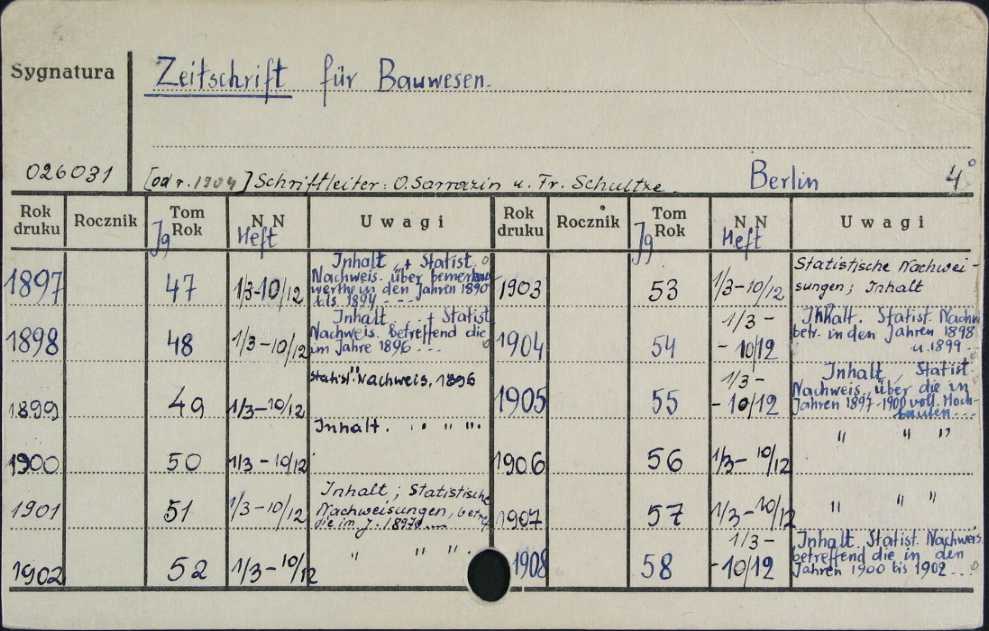 Sygnatura
Zeitschrift für Bauwesen.
026031
[od r. 1904] Schriftleiter: O. Sarrazin u. Fr. Schultze.
Berlin
4°
Rok druku Rocznik Tom Rok N N Uwagi Rok druku Rocznik Tom Rok N N Uwagi
Jg Heft Jg Heft
1897 47 1/3-10/12 Inhalt, + Statist.
Nachweis. über bemerkens
werthe in den Jahren 1890
bis 1894 - - -
1898 48 1/3-10/12 Inhalt. . + Statist
Nachweis. Betreffend die
im Jahre 1896 - - -
1899 49 1/3-10/12 Statist. Nachweis, 1896
1900 50 1/3-10/12 Inhalt. " " " "
1901 51 1/3-10/12 Inhalt; Statistische
Nachweisungen, betr.
die im J. 1897
1902 52 1/3-10/12 " " "
1903 53 1/3-10/12 Statistische Nachwei-
sungen; Inhalt
1904 54 1/3-
-10/12 Inhalt. Statist. Nachw.
betr. in den Jahren 1898
u. 1899 - -
1905 55 1/3-
-10/12 Inhalt, Statist.
Nachweis, über die in
Jahren 1897-1900 voll. Hoch-
bauten - - -
1906 56 1/3-10/12 " " "
1907 57 1/3-10/12 " " "
1908 58 1/3-
-10/12 Inhalt. Statist. Nachweis.
betreffend die in den
Jahren 1900 bis 1902 - - -